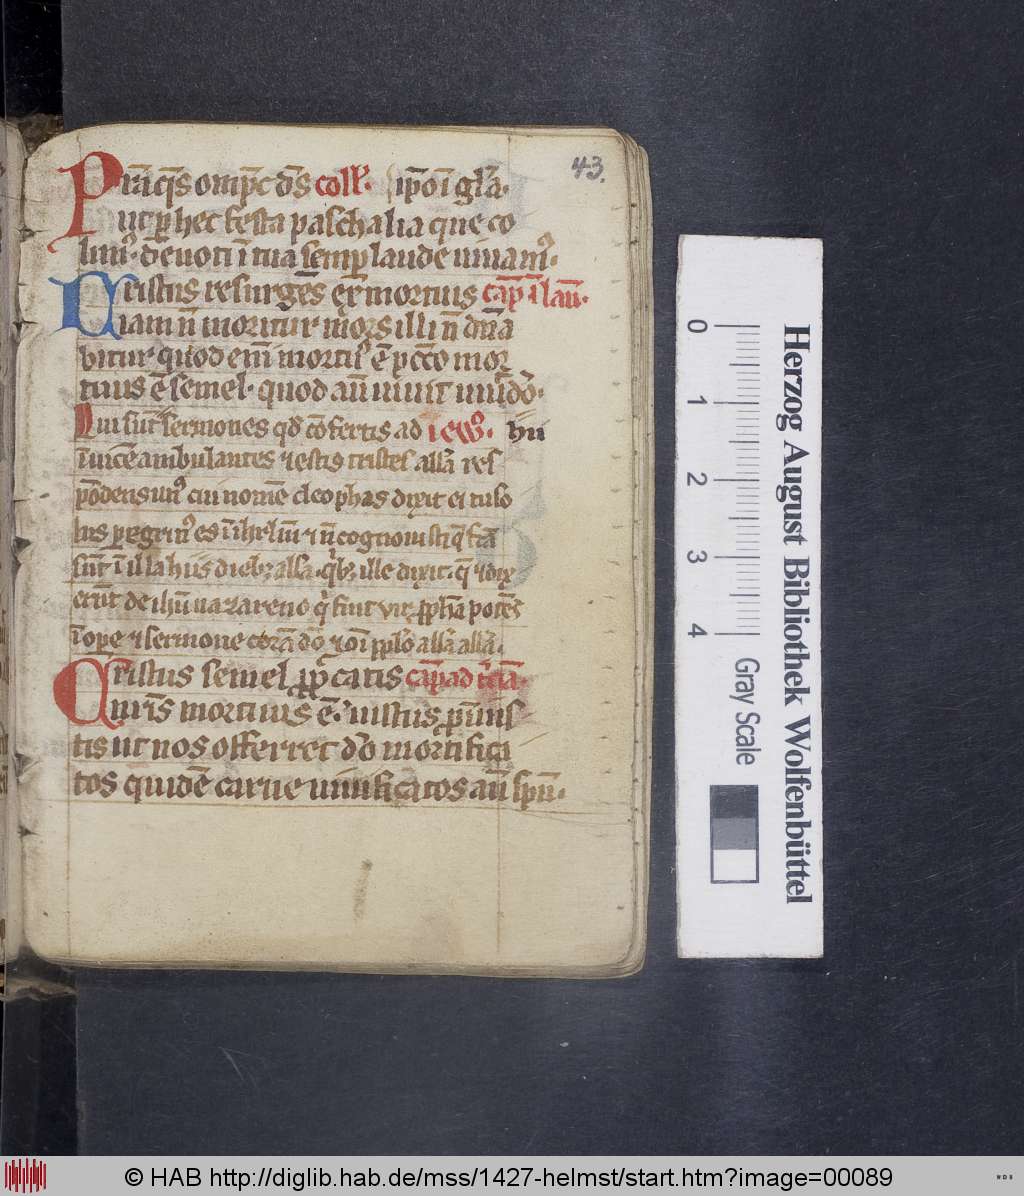 43.
P̄rā q̄s omp̄c d̄s coll̄. ip̄o ī gl̄a.
ut ꝑ hec festa paschalia que co
limꝰ. deuoti ī tua semꝑ laude uiuamꝰ.
Cristus resurgēs ex mortuis cap̄ ī lau᷒.
iam n̄ moritur mors illi n̄ dn̄a
bitur quod em̄ mortuꝰ ē pcc̄o mor
tuus ē semel. quod au᷒ uiuit uiu᷒ dō.
Qui sūt sermones qd̓ cōfertis ad iewꝰ. hii
inuicē ambulantes ⁊ estis tristes all̄a res
pōdens unꝰ cui nomē cleophas dixit ei tu so
lus peregrinꝰ es ī ihrlm̄ ⁊ n̄ cognouisti q̄ fc̄a
sūt ī illa hiis dieb᷒ all̄a. qib᷒ ille dixit. q̄ ⁊ dix
erūt de ihū nazareno q̓ fuit vir ꝓph̄a potēs
ī oꝑe ⁊ sermone corā dō ⁊ oī pp̄lo all̄a all̄a.
Cristus semel ꝓ pcc̄atis cap̄ ad t̓ciā.
nr̄is mortuus ē. iustus ꝓ iniūs
tis ut nos offerret dō mortifica
tos quidē carne uiuificatos au᷒ sp̄u.
0 1 2 3 4
Gray Scale
Herzog August Bibliothek Wolfenbüttel
© HAB http://diglib.hab.de/mss/1427-helmst/start.htm?image=00089